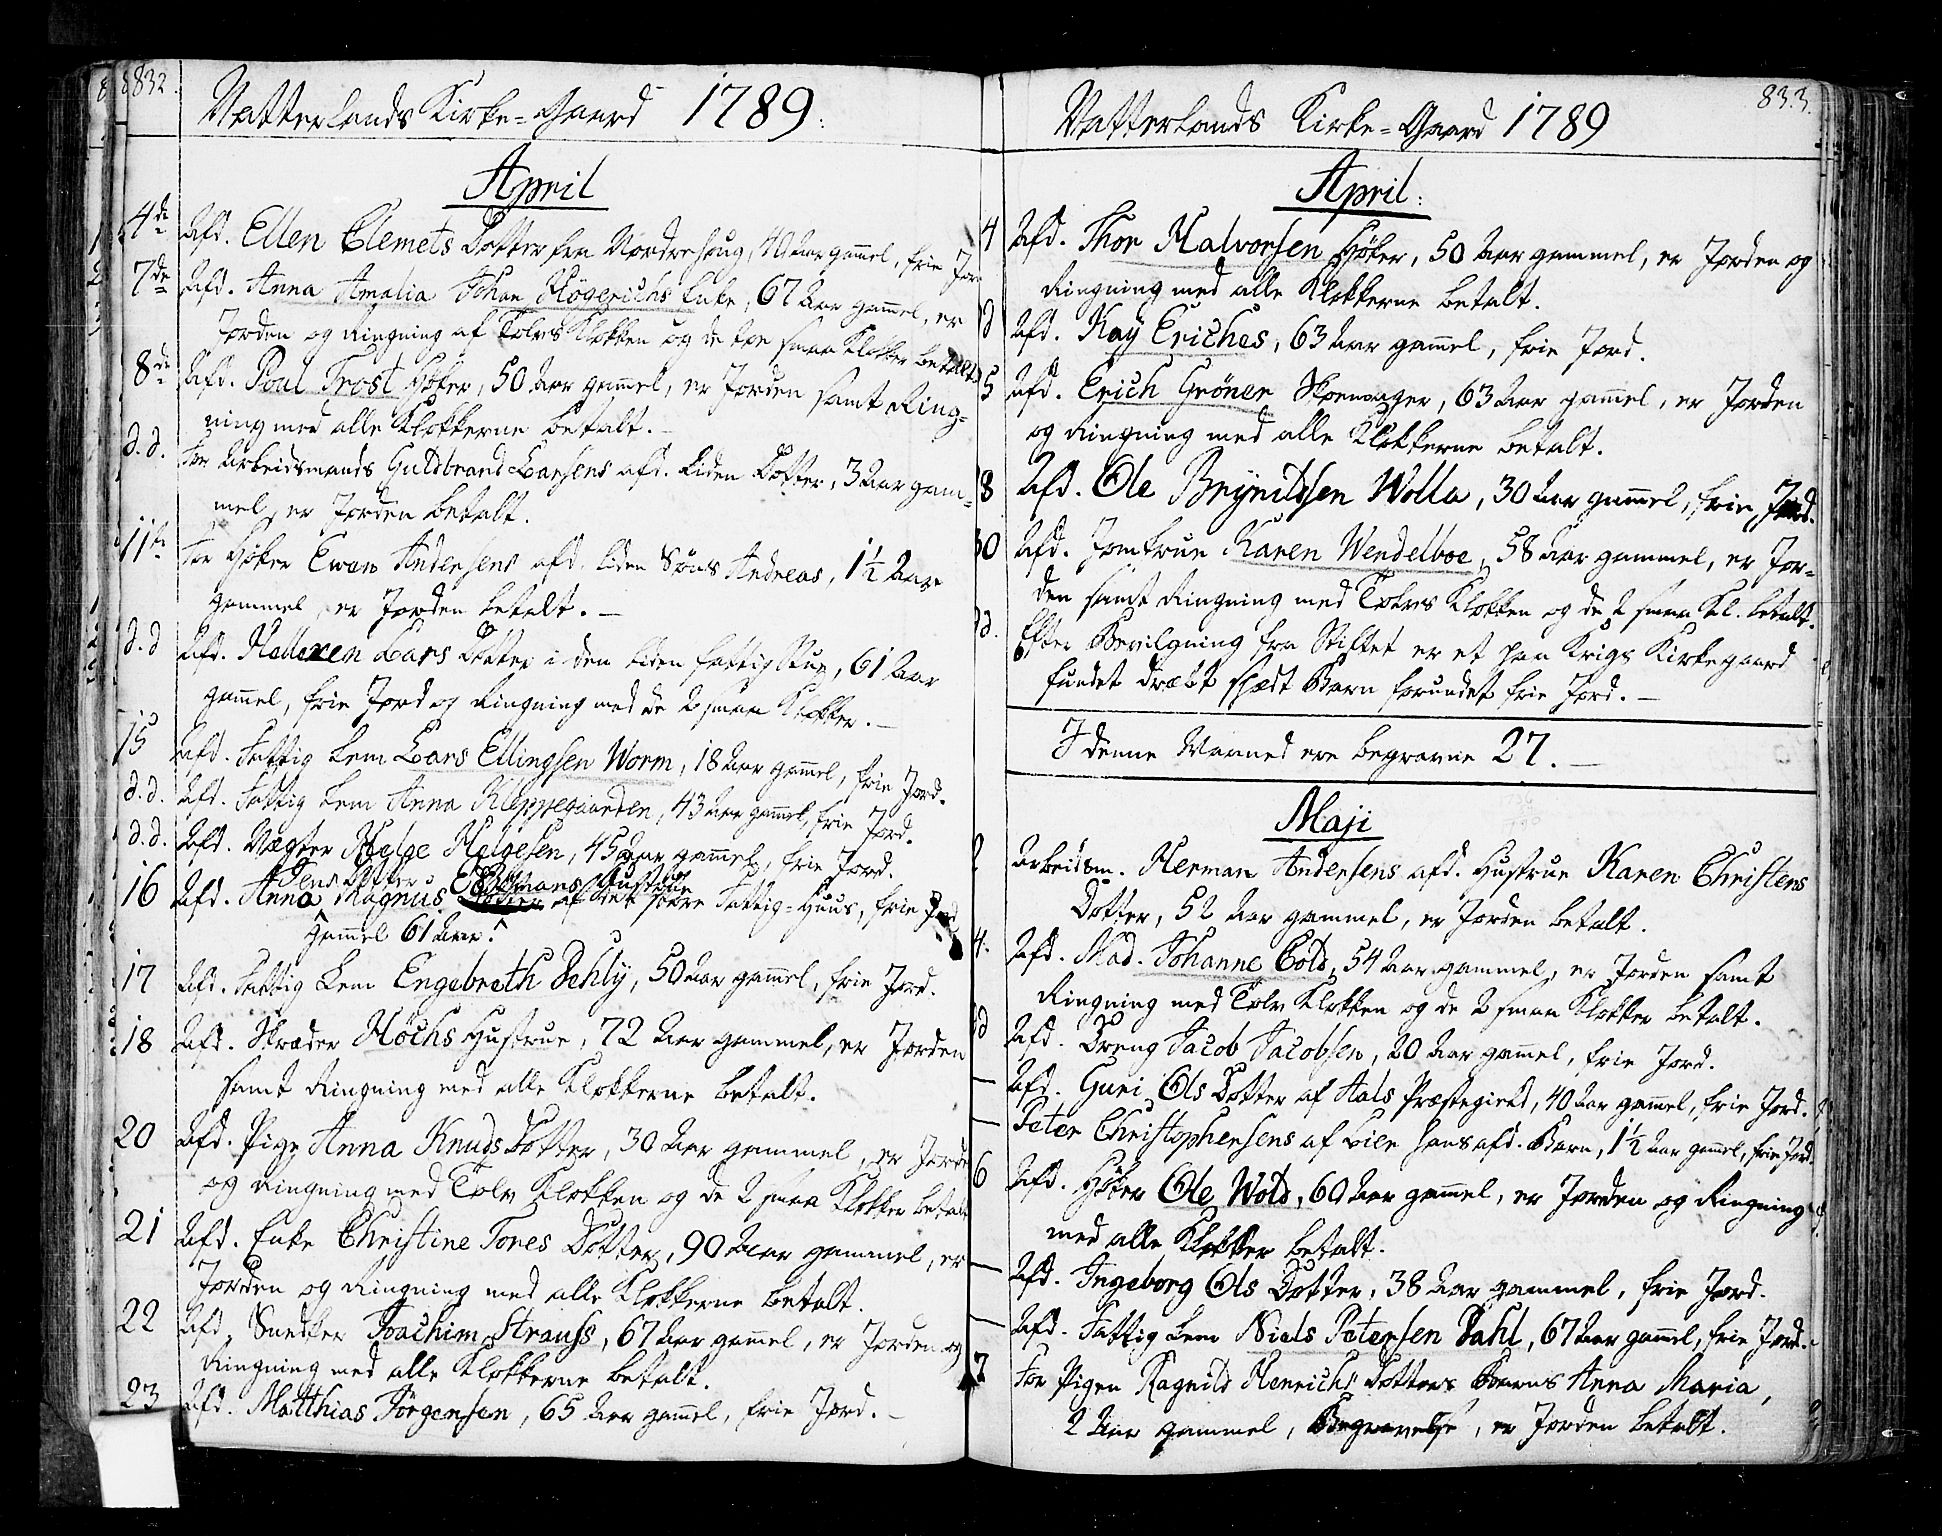 832.
Vatterlands Kirke-Gaard 1789.
April
4de Afd. Ellen Clemets Dotter fra Nordrehaug, 40 Aar gam̅el, frie Jor
7de Afd. Anna Amalia Johan Högerichs Enke, 67 Aar gam̅el, er
Jorden og Ringning af Tolvs Klokken og de toe smaa Klokker betalt.
8de Afd. Poul Trost Høker, 50 Aar gam̅el, er Jorden samt Ring-
ning med alle Klokkerne betalt.
d.d. For Arbeidsmands Guldbrand Larsens afd. liden Dotter, 3 Aar gam-
mel, er Jorden betalt.
11te For Høker Ewen Andersens afd. liden Søns Andreas, 1½ Aar
gammel, er Jorden betalt.
d.d Afd. Lars Dotter i den liden fattig Stue, 61 Aar
gam̅el, frie Jord og Ringning med de 2 smaa Klokker.
15 Afd. Fattig Lem Lars Ellingsen Worm, 18 Aar gam̅el, frie Jord.
d.d. Afd. Fattig Lem Anna Kleppegaarden, 43 Aar gam̅el, frie Jord.
d.d. Afd. Vægter Helge Helgesen, 45 Aar gam̅el, frie Jord.
Jens Dotter
16 Afd. Anna Magnus Hustrue af det store Fattig-Huus, frie Jord
gammel 61 Aar.
17 Afd. Fattig Lem Engebreth Dehly, 50 Aar gam̅el, frie Jord.
18 Afd. Skræder Höchs Hustrue, 72 Aar gammel, er Jorden
samt Ringning med alle Klokkerne betalt.
20 Afd. Pige Anna Knuds Dotter, 30 Aar gammel, er Jorde
og Ringning med Tolv Klokken og de 2 smaa Klokker betalt
21 Afd. Enke Christine Tores Dotter, 90 Aar gammel, er
Jorden og Ringning med alle Klokkerne betalt.
22 Afd. Snedker Joachim Strauss, 67 Aar gam̅el, er Jorden og
Ringning med alle Klokkerne betalt.
23 Afd. Matthias Jörgensen, 65 Aar gam̅el, frie Jord.
833.
Vatterlands Kirke-Gaard 1789
April.
4 Afd. Thor Halvorsen Høker, 50 Aar gammel, er Jorden og
Ringning med alle Klokkerne betalt.
d Afd. Kay Eriches, 63 Aar gam̅el, frie Jord.
5 Afd. Erich Gröner, 63 Aar gam̅el, er Jorden
og Ringning med alle Klokkerne betalt.
8 Afd. Ole Brynildsen Wolla, 30 Aar gam̅el, frie Jord.
30 Afd. Jomfrue Karen Wendelboe, 58 Aar gammel, er Jor-
den samt Ringning med Tolvs Klokken og de 2 smaa Kl. betalt.
d. Efter Bevilgning fra Stiftet er et paa Krigs Kirkegaard
fundet dræbt spædt Barn forundet frie Jord.
I denne Maaned ere begravne 27.
Maji
2 Arbeidsm. Herman Andersens afd. Hustrue Karen Christens
Dotter, 52 Aar gammel, er Jorden betalt.
4. Afd. Mad. Johanne Cold, 54 Aar gammel, er Jorden samt
Ringning med Tolv Klokken og de 2 smaa Klokker betalt.
d Afd. Dreng Jacob Jacobsen, 20 Aar gam̅el, frie Jord.
— Afd. Guri Ols Dotter af Aals Præstegield, 40 Aar gam̅el, frie Jord.
— Peter Christophersens af Lier hans afd. Barn, 1½ Aar gam̅el, frie Jord.
6 Afd. Høker Ole Wold, 60 Aar gam̅el, er Jorden og Ringning
med alle Klokker betalt.
— Afd. Ingeborg Ols Dotter, 38 Aar gammel, frie Jord.
— Afd. Fattig Lem Niels Petersen Dahl, 67 Aar gam̅el, frie Jord.
7 For Pigen Ragnild Henrichs Dotters Barns Anna Maria,
2 Aar gammel, Begravelse, er Jorden betalt.